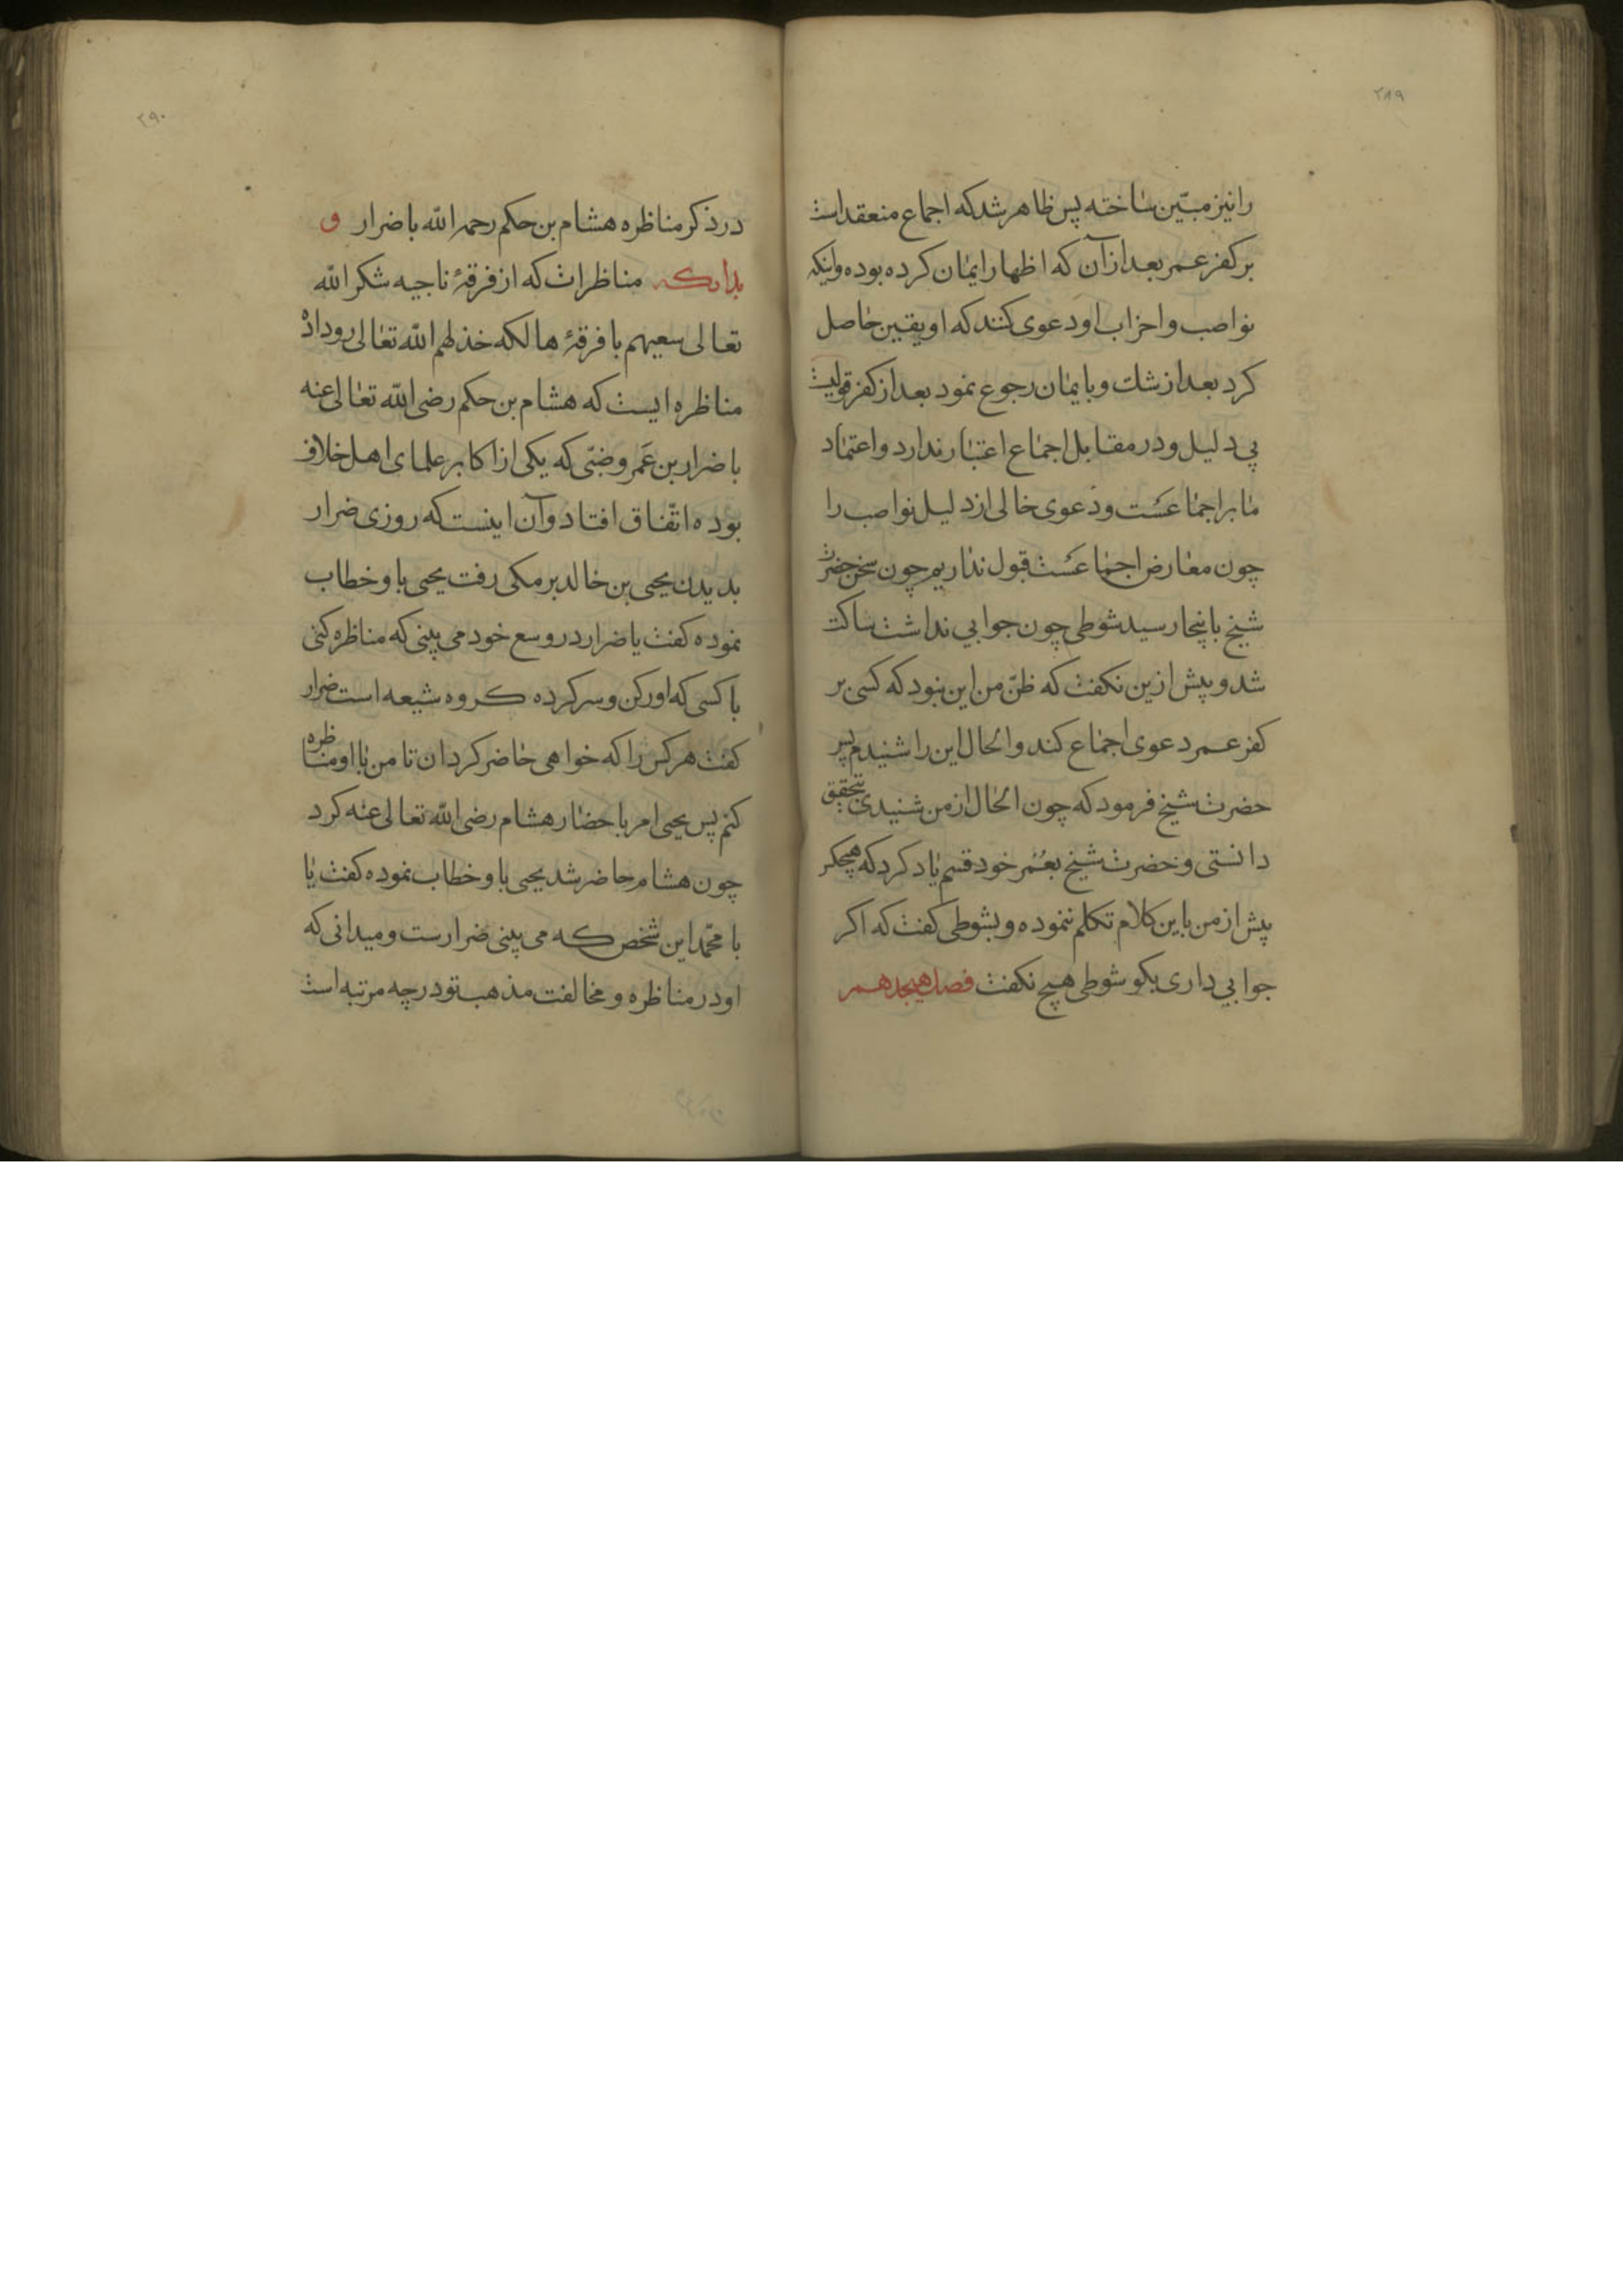 ۲۸۹
را نیز مبیّن ساخته پس ظاهر شد که اجماع منعقد است
بر کفر عمر بعد از آن که اظهار ایمان کرده بوده و اینکه
نواصب و احزاب او دعوی کنند که او یقین حاصل
کرد بعد از شك و بایمان رجوع نمود بعد از کفر قولیست
بی دلیل و در مقابل اجماع اعتبار ندارد و اعتماد
ما بر اجماعست و دعوی خالی از دلیل نواصب را
چون معارض اجماعست قبول نداریم چون سخن حضرت
شیخ باینجا رسید شوطی چون جوابی نداشت ساکت
شد و پیش ازین نکفت که ظنّ من این بنود که کسی بر
کفر عمر دعوی اجماع کند و الحال این را شنیدم پس
حضرت شیخ فرمود که چون الحال از من شنیدی بتحقیق
دانستی و حضرت شیخ بعُمر خود قسم یاد کرد که هیچکس
پیش از من باین کلام تکلم ننموده و بشوطی کفت که اکر
جوابی داری بکو شوطی هیچ نکفت فصل هیجدهم
۲۹۰
در ذکر مناظره هشام بن حکم رحمه الله با ضرار و
بدانکه مناظرات که از فرقهٔ ناجیه شکر الله
تعالی سعیهم با فرقهٔ هالکه خذلهم الله تعالی روداده
مناظره ایست که هشام بن حکم رضی الله تعالی عنه
با ضرار بن عَمرو ضبّی که یکی از اکابر علمای اهل خلاف
بوده اتّفاق افتاد و آن اینست که روزی ضرار
بدیدن یحیی بن خالد برمکی رفت یحیی باو خطاب
نموده کفت یا ضرار در وسع خود می بینی که مناظره کنی
با کسی که او رکن و سرکرده کروه شیعه است ضرار
کفت هر کس را که خواهی حاضر کردان تا من با او مناظره
کنم پس یحیی امر باحضار هشام رضی الله تعالی عنه کرد
چون هشام حاضر شد یحیی باو خطاب نموده کفت یا
با محمّد این شخص که می بینی ضرارست و میدانی که
او در مناظره و مخالفت مذهب تو در چه مرتبه است